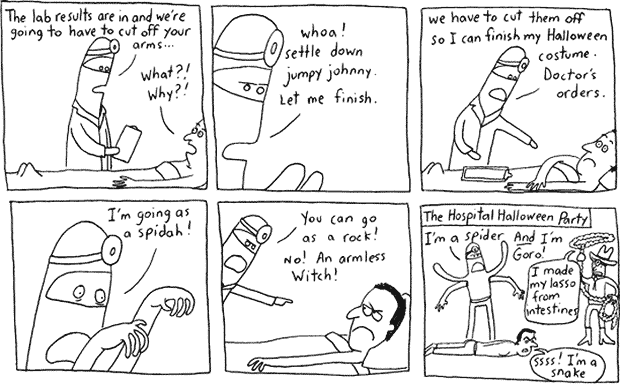 The lab results are in and we're
going to have to cut off your
arms...
What?!
Why?!
whoa!
settle down
jumpy johnny.
Let me finish.
we have to cut them off
so I can finish my Halloween
costume.
Doctor's
orders.
I'm going as
a spidah!
You can go
as a rock!
No! An armless
Witch!
The Hospital Halloween Party
I'm a spider
And I'm
Goro!
I made
my lasso
from
intestines
ssss! I'm a
snake